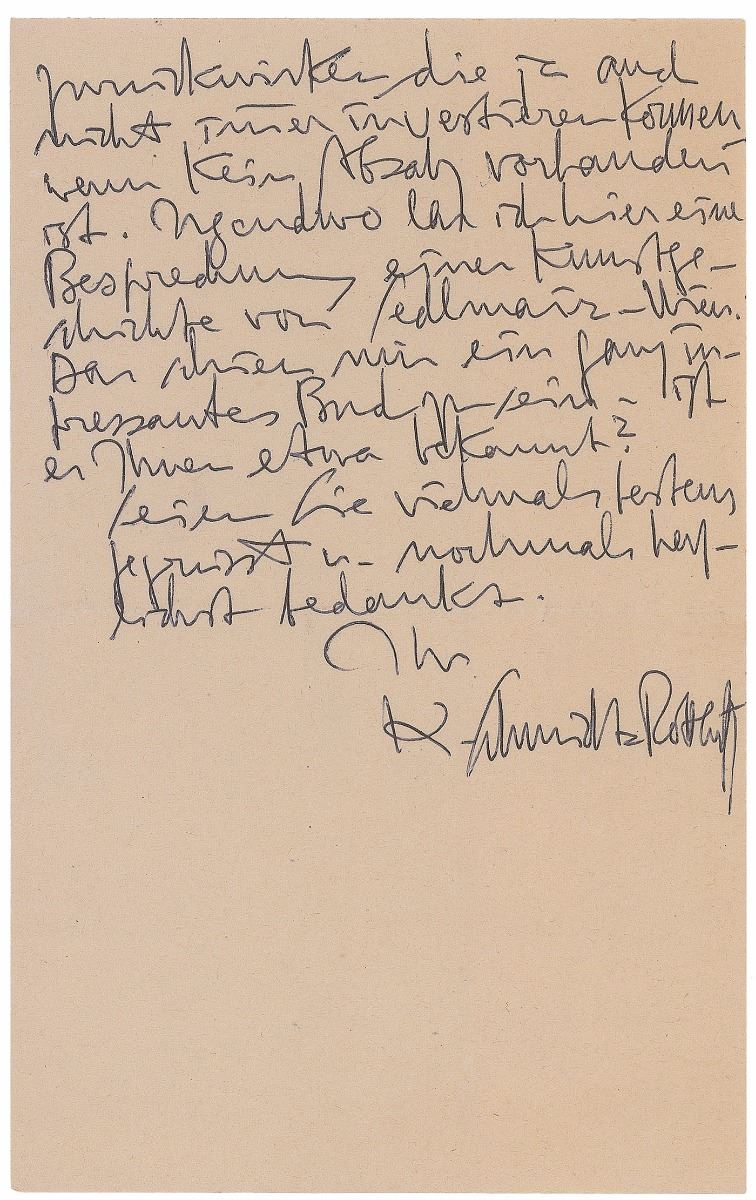 zurückwirken die ja auch
nicht immer investieren können
wenn kein Absatz vorhanden
ist. Irgendwo las ich hier eine
Besprechung einer Kunstge-
schichte von Sedlmair-Wien.
Das schien mir ein ganz in-
teressantes Buch zu sein - ist
es Ihnen etwa bekannt?
Seien Sie vielmals bestens
gegrüsst u. nochmals herz-
lichst bedankt.
Ihr
K. Schmidt-Rottluff